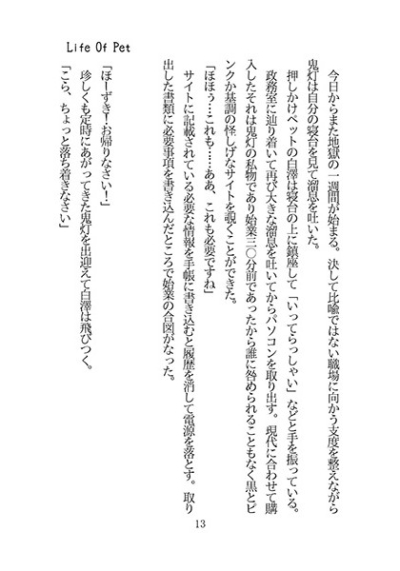 Life Of Pet
今日からまた地獄の一週間が始まる。決して比喩ではない職場に向かう支度を整えながら
鬼灯は自分の寝台を見て溜息を吐いた。
押しかけペットの白澤は寝台の上に鎮座して「いってらっしゃい」などと手を振っている。
政務室に辿り着いて再び大きな溜息を吐いてからパソコンを取り出す。現代に合わせて購
入したそれは鬼灯の私物であり始業三〇分前であったから誰に咎められることもなく黒とピ
ンクが基調の怪しげなサイトを覗くことができた。
「ほほぅ…これも……ああ、これも必要ですね」
サイトに記載されている必要な情報を手帳に書き込むと履歴を消して電源を落とす。取り
出した書類に必要事項を書き込んだところで始業の合図がなった。
「ほーずき！お帰りなさい！」
珍しくも定時にあがってきた鬼灯を出迎えて白澤は飛びつく。
「こら、ちょっと落ち着きなさい」
13